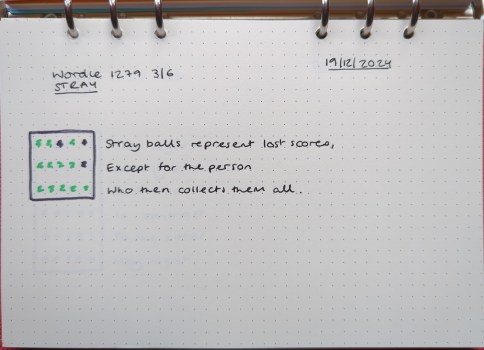 19/12/2024
Wordle 1279 3/6
STRAY
Stray balls represent lost scores,
Except for the person
Who then collects them all.